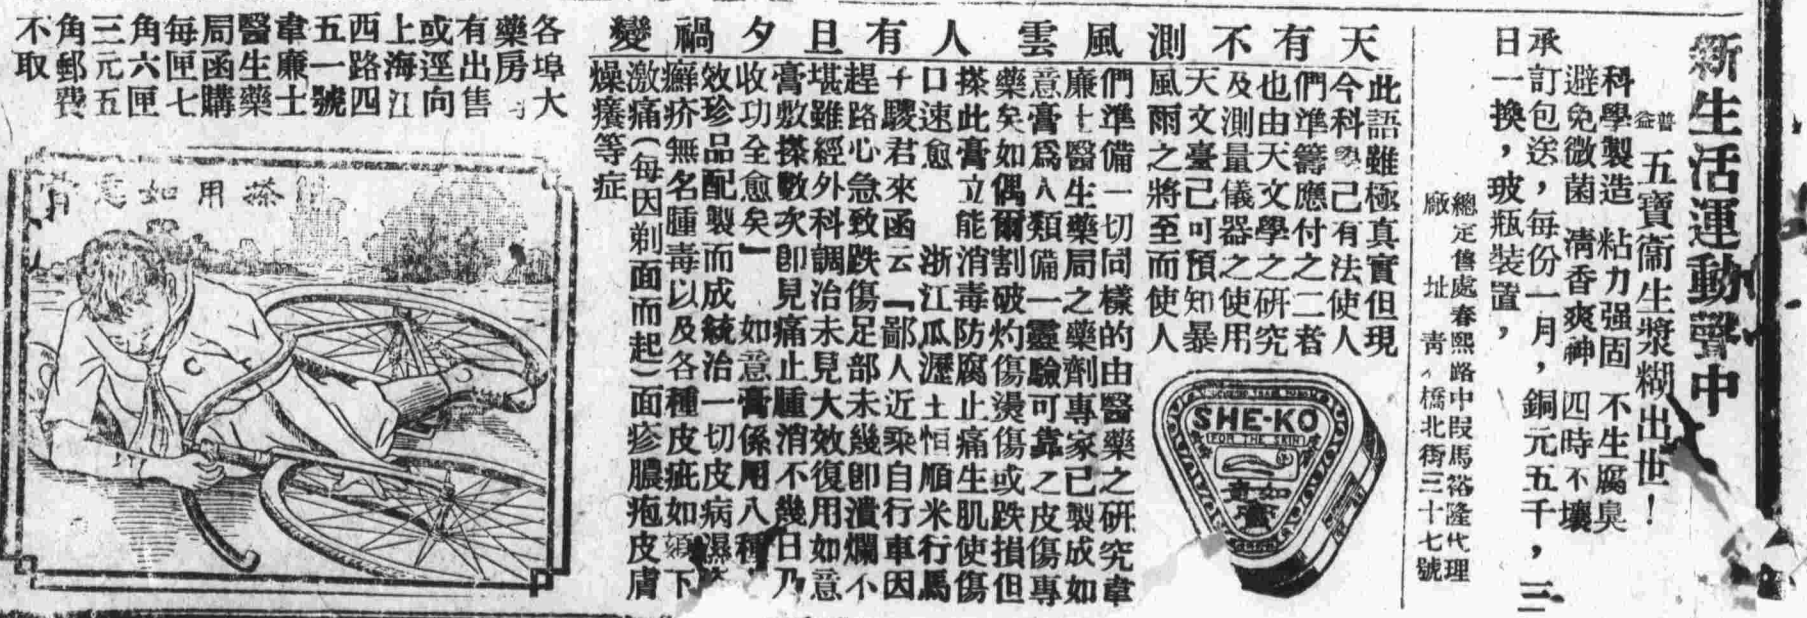 新生活運動聲中
普益 五寶衞生漿糊出世！
科學製造 粘力强固 不生腐臭
避免微菌 凊香爽神 四時不壞
承訂包送，每份一月，銅元五千，三
日一換，玻瓶裝置，
總定售處春熙路中段馬裕隆代理
廠 址 青 橋北街三十七號
天有不測風雲人有旦夕禍變
此語雖極真實但現
今科學己有法使人
們準籌應付之二者
也由天文學之硏究
及測量儀器之使用
天文臺己可預知暴
風雨之將至而使人
們準備一切同樣的由醫藥之硏究韋
廉士醫生藥局之藥劑專家已製成如
意膏爲人類備一靈驗可靠之皮傷專
藥矣如偶爾割破灼傷燙傷或跌損但
搽此膏立能消毒防腐止痛生肌使傷
口速愈 浙江瓜瀝土恒順米行馬
千驥君來函云『鄙人近乘自行車因
趕路心急致跌傷足部未幾卽潰爛不
堪雖經外科調治未見大效復用如意
膏敷搽數次卽見痛止腫消不幾日乃
收功全愈矣』 如意膏係用八種
效珍品配製而成統治一切皮病濕
癬疥無名腫毒以及各種皮疵如 下
激痛（每因剃面而起）面疹膿疱皮膚
燥癢等症
SHE-KO
(FOR THE SKIN)
如意膏
各埠大
藥房均
有出售
或逕向
上海江
西路四
五一號
韋廉士
醫生藥
局函購
每匣七
角六匣
三元五
角郵費
不取
搽用如意膏